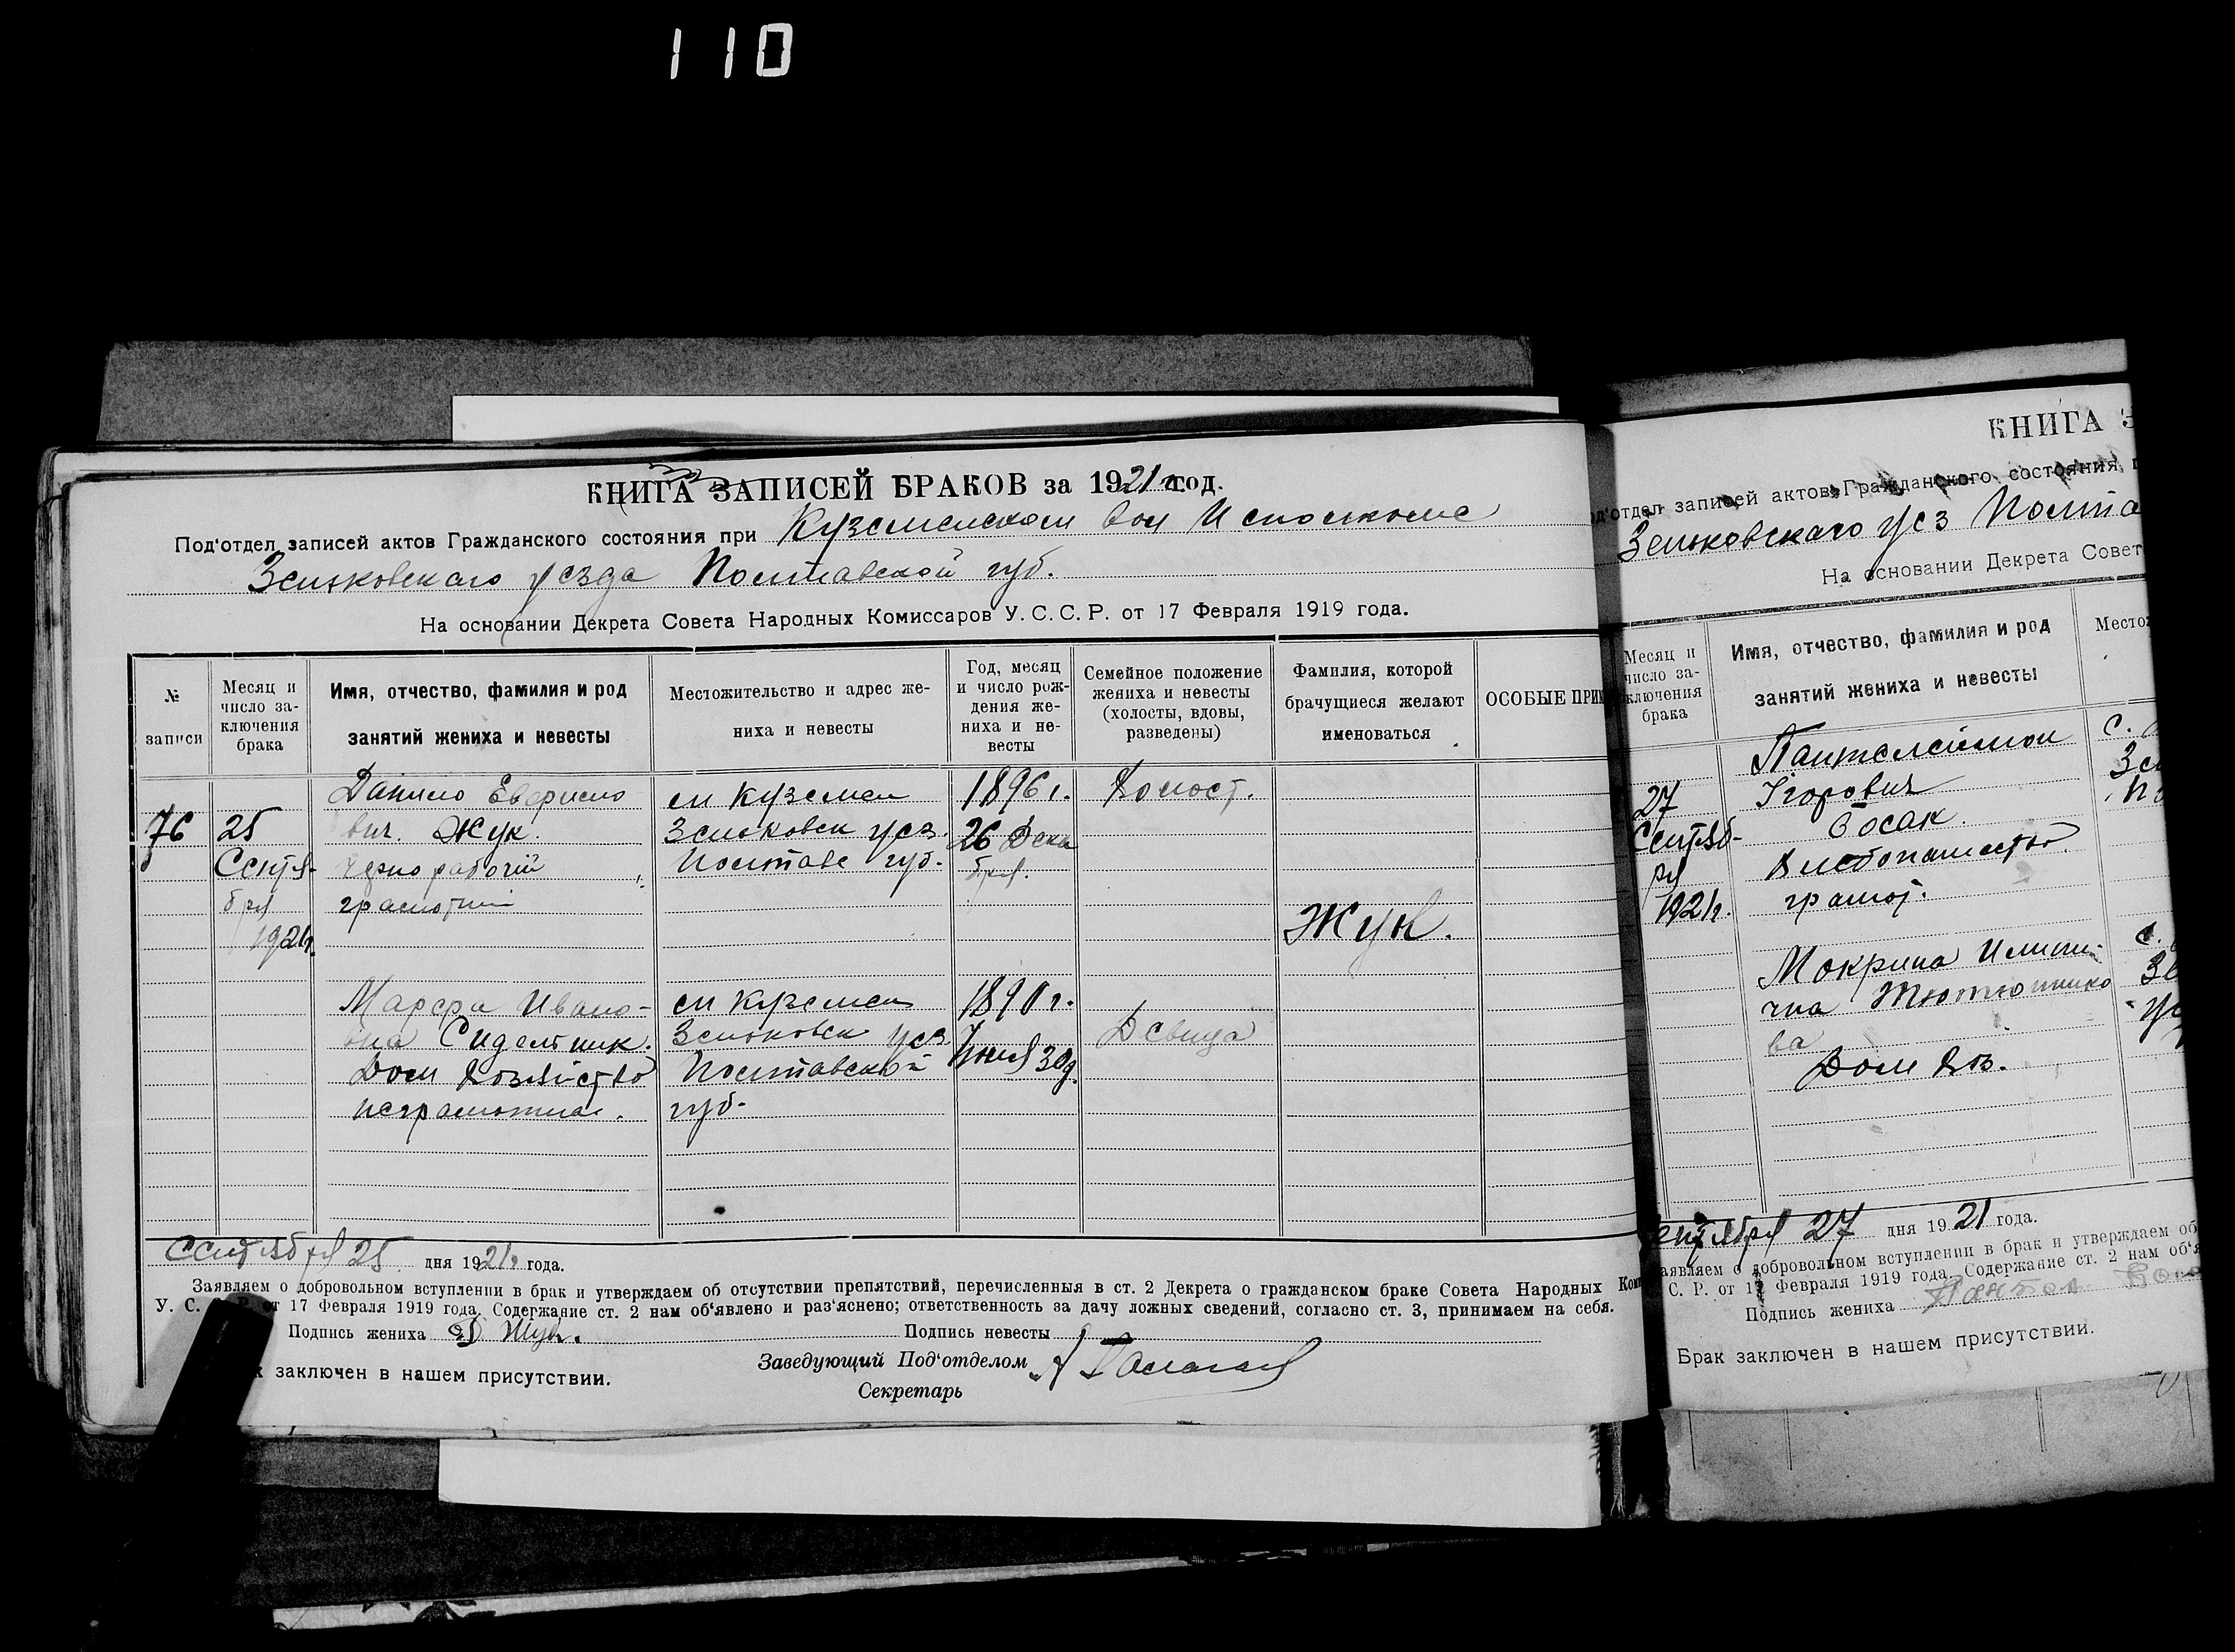 110
КНИГА ЗАПИСЕЙ БРАКОВ за 1921 г. год.
Под'отдел записей актов Гражданского состояния при Куземенском вол Исполкоме
Зеньковского уезда Полтавской губ.
На основании Декрета Совета Народных Комиссаров У. С. С. Р. от 17 Февраля 1919 года.
№ записи
Месяц и число заключения брака
Имя, отчество, фамилия и род занятий жениха и невесты
Местожительство и адрес жениха и невесты
Год, месяц и число рождения жениха и невесты
Семейное положение жениха и невесты (холосты, вдовы, разведены)
Фамилия, которой брачущиеся желают именоваться
ОСОБЫЕ ПРИМ
76
25
Сентя-
бря
1921г.
Данило
вич. Жук.
Чернорабочий
грамотный
см Куземен
Зеньковск уез.
Полтавс губ.
1896 г.
26 Дека
бря.
Холост.
Жук.
Марфа Ивано-
вна Сиделник.
Дом Хозяйство
неграмотная.
см Куземен
Зеньковск уез
Полтавской
губ.
1890 г.
30д.
Девица
Сентября 25 дня 1921г года.
Заявляем о добровольном вступлении в брак и утверждаем об отсутствии препятствий, перечисленныя в ст. 2 Декрета о гражданском браке Совета Народных Ком
У. С. Р. от 17 Февраля 1919 года. Содержание ст. 2 нам об'явлено и раз'яснено; ответственность за дачу ложных сведений, согласно ст. 3, принимаем на себя.
Подпись жениха Д Жук. Подпись невесты
заключен в нашем присутствии.
Заведующий Под'отделом
Секретарь
КНИГА З
од'отдел записей актов Гражданского состояния п
Зеньковскаго уез Полта
На основании Декрета Совет
Месяц и число заключения брака
Имя, отчество, фамилия и род занятий жениха и невесты
Местож
27
Сентяб-
ря
1921г.
Пантелеимон
Ігорович
Босак.
Хлебопашество
грамот.
с.
Зен
По
Мокрина
чна Тютюннико
ва
Дом Хоз.
с.
Зе
уе
ентября 27 дня 1921 года.
аявляем о добровольном вступлении в брак и утверждаем об
С. Р. от 17 Февраля 1919 года. Содержание ст. 2 нам об'я
Подпись жениха
Брак заключен в нашем присутствии.